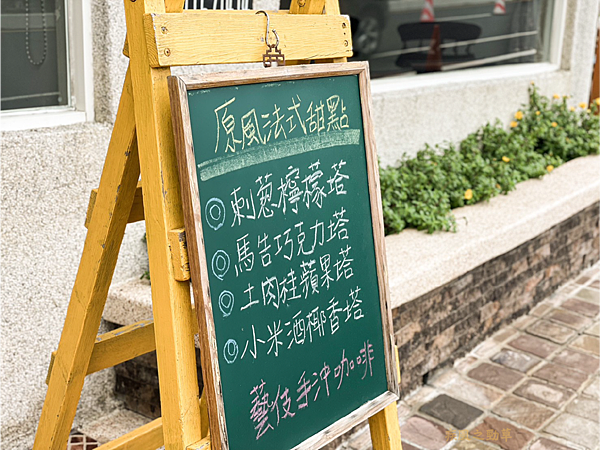 原風法式甜點
◎刺蔥檸檬塔
◎馬告巧克力塔
◎土肉桂蘋果塔
◎小米酒椰香塔
藝伎手沖咖啡